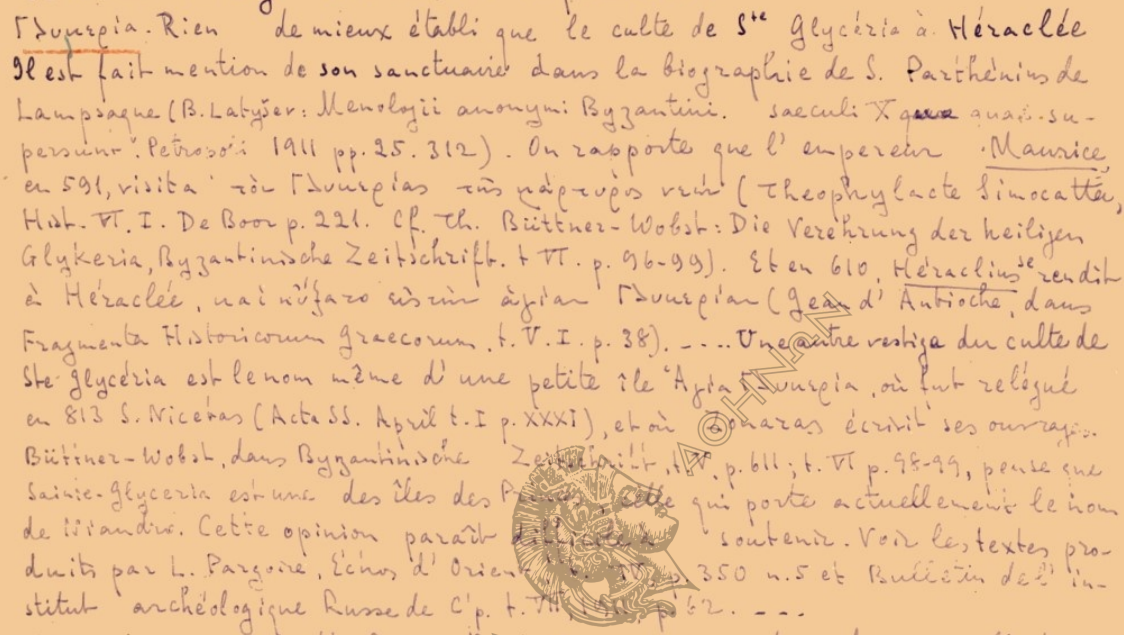 Γλυκερία. Rien de mieux établi que le culte de Ste Glycéria à Héraclée
Il est fait mention de son sanctuaire dans la biographie de S. Parthénius de
Lampsaque (B. Latyšev: Menologii anonymi Byzantini. saeculi X quae su-
persunt. Petropoli 1911 pp. 25. 312). On rapporte que l' empereur Maurice,
en 591, visita τὸν Γλυκερίας τῆς μάρτυρος νεών (Theophylacte Simocatta,
Hist. VI. I. De Boor p. 221. Cf. Th. Büttner-Wobst: Die Verehrung der heiligen
Glykeria, Byzantinische Zeitschrift. t VI. p. 96-99). Et en 610, Héraclius se rendit
à Héraclée, καὶ ηὔξατο εἰς τὴν ἁγίαν Γλυκερίαν (Jean d' Antioche, dans
Fragmenta Historicorum Graecorum, t. V. I. p. 38). - .... Une autre vestige du culte de
Ste Glycéria est le nom même d' une petite île Ἁγία Γλυκερία, où fut relégué
en 813 S. Nicétas (Acta SS. April t. I p. XXXI), et où Zonaras écrivit ses ouvrages.
Büttner-Wobst, dans Byzantinische Zeitschrift, t. V. p. 611; t. VI p. 98-99, pense que
Sainte-Glyceria est une des îles des Princes, celle qui porte actuellement le nom
de Niandro. Cette opinion paraît difficile à soutenir. Voir les textes pro-
duits par L. Pargoire, Échos d' Orient t. IV, p. 350 n. 5 et Bulletin de l' in-
stitut archéologique Russe de C'p. t. VII, p. 62. - - -
ΑΘΗΝΩΝ